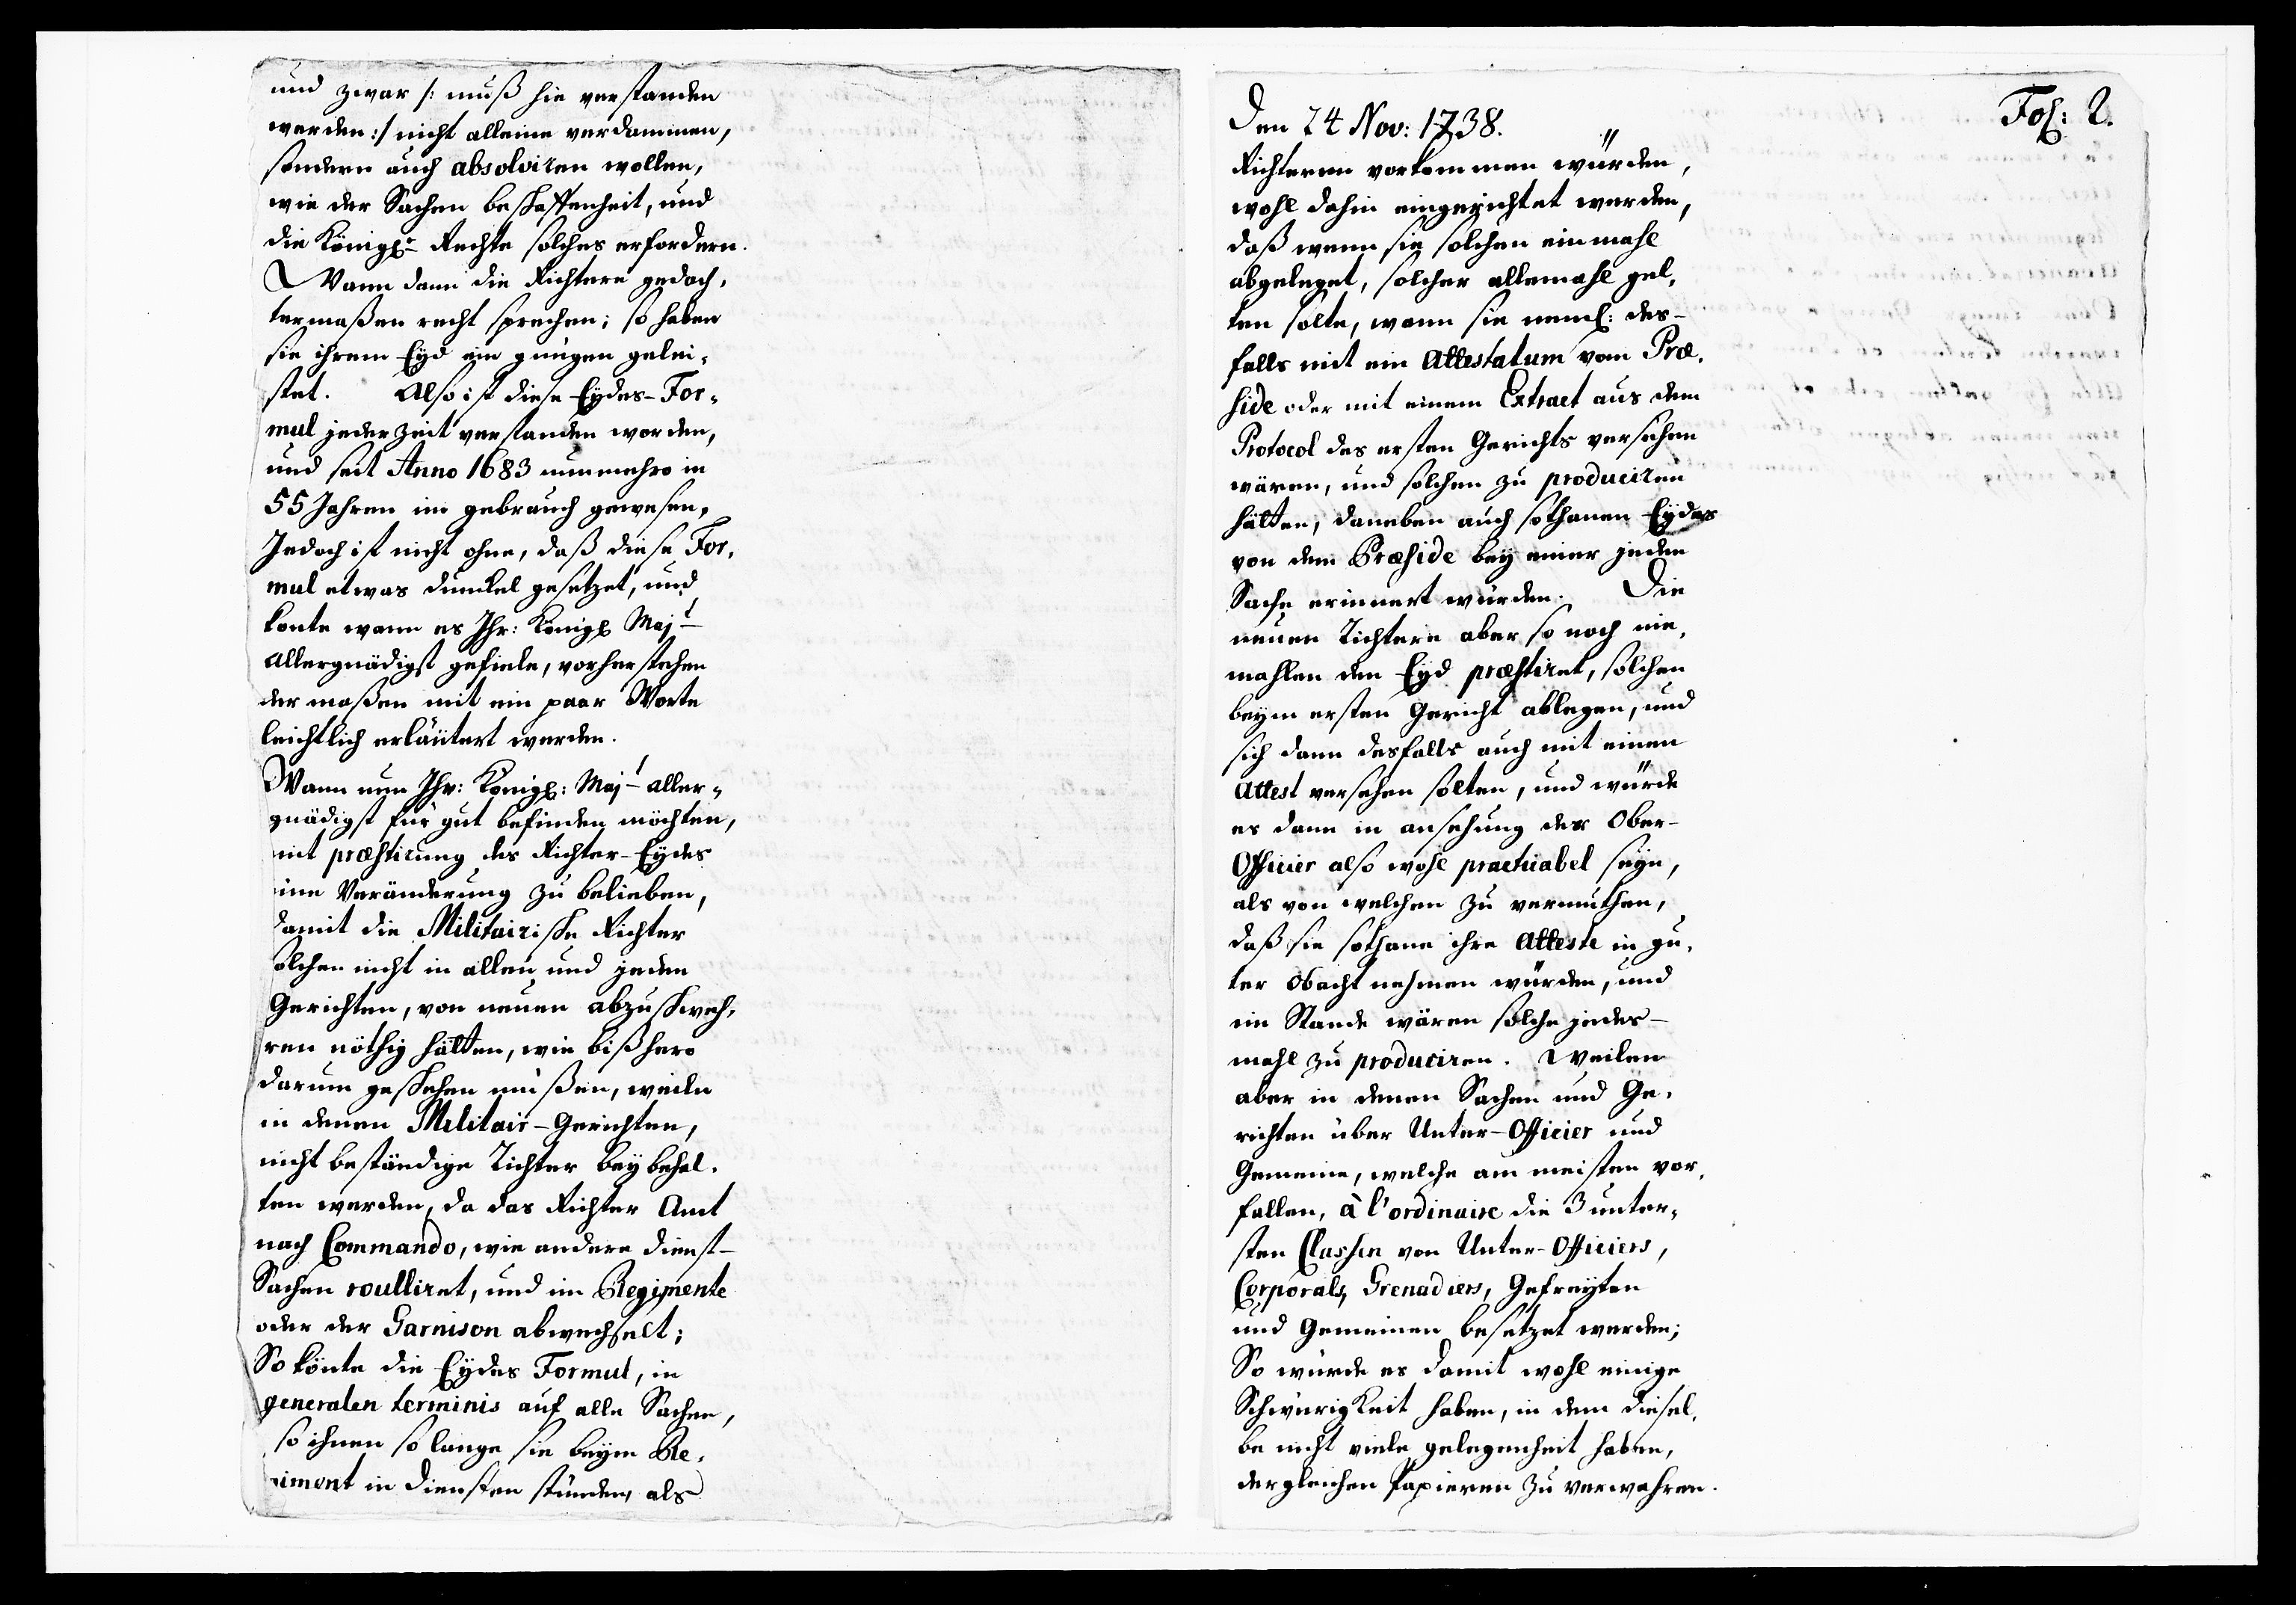 und zwar /: muß hie verstanden
werden :/ nicht alleine verdammen,
sondern auch absolviren wollen,
wie der Sachen beschaffenheit, und
die Königl: Rechte solches erfordern.
Wann dann die Richtere gedach,
termaßen recht sprechen; so haben
sie ihrem Eyd ein gnügen gelei,
stet. Also ist diese Eydes-For,
mul jederzeit verstanden worden,
und seit Anno 1683 nunmehro in
55 Jahren im gebrauch gewesen,
Jedoch ist nicht ohne, daß diese For,
mul etwas dunckel gesetzet, und
konte wann es Ihr: Königl Majt
allergnädigst gefiele, vorherstehen
der maßen mit ein paar Worte
leichtlich erläutert werden.
Wann nun Ihr: Königl: Majt aller,
gnädigst für gut befinden möchten,
mit præstirung des Richter-Eydes
eine Veränderung zu belieben,
damit die Militairische Richter
solchen nicht in allen und jeden
Gerichten, von neuen abzuschweh,
ren nöthig hätten, wie bißhero
darum geschehen müßen, weiln
in denen Militair-Gerichten,
nicht beständige Richter beybehal,
ten werden, da das Richter Amt
nach Commando, wie andere Dienst-
Sachen roulliret, und im Regimente
oder der Garnison abwechselt;
So könte die Eydes Formul, in
generalen terminis auf alle Sachen,
so ihnen so lange sie beym Re,
giment in Diensten stünden, als
Fol: 2.
Den 24 Nov: 1738.
Richteren vorkommen würden,
wohl dahin eingerichtet werden,
daß wenn sie solchen einmahl
abgeleget, solcher allemahl gel,
ten solte, wann sie neml: des-
falls mit ein Attestatum vom Præ,
side oder mit einem Extract aus dem
Protocol des ersten Gerichts versehen
wären, und solchen zu produciren
hätten, daneben auch sothanen Eydes
von dem Præside bey einer jeden
Sache erinnert würden. Die
neuen Richtere aber so noch nie,
mahlen den Eyd præstiret, solchen
beym ersten Gericht ablegen, und
sich dann desfalls auch mit einen
Attest versehen solten, und würde
es dann in ansehung der Ober-
Officier also wohl practicabel seyn,
als von welchen zu vermuthen,
daß sie sothane ihre Atteste in gu,
ter Obacht nehmen würden, und
im Stande wären solche jedes-
mahl zu produciren. Weilen
aber in denen Sachen und Ge,
richten über Unter-Officier und
Gemeine, welche am meisten vor,
fallen, à l'ordinaire die 3 unter,
sten Classen von Unter-Officiers,
Corporals, Grenadiers, Gefreyten
und Gemeinen besetzet werden;
So würde es damit wohl einige
Schwürigkeit haben, in dem diesel,
be nicht viele gelegenheit haben,
dergleichen Papieren zu verwahren.